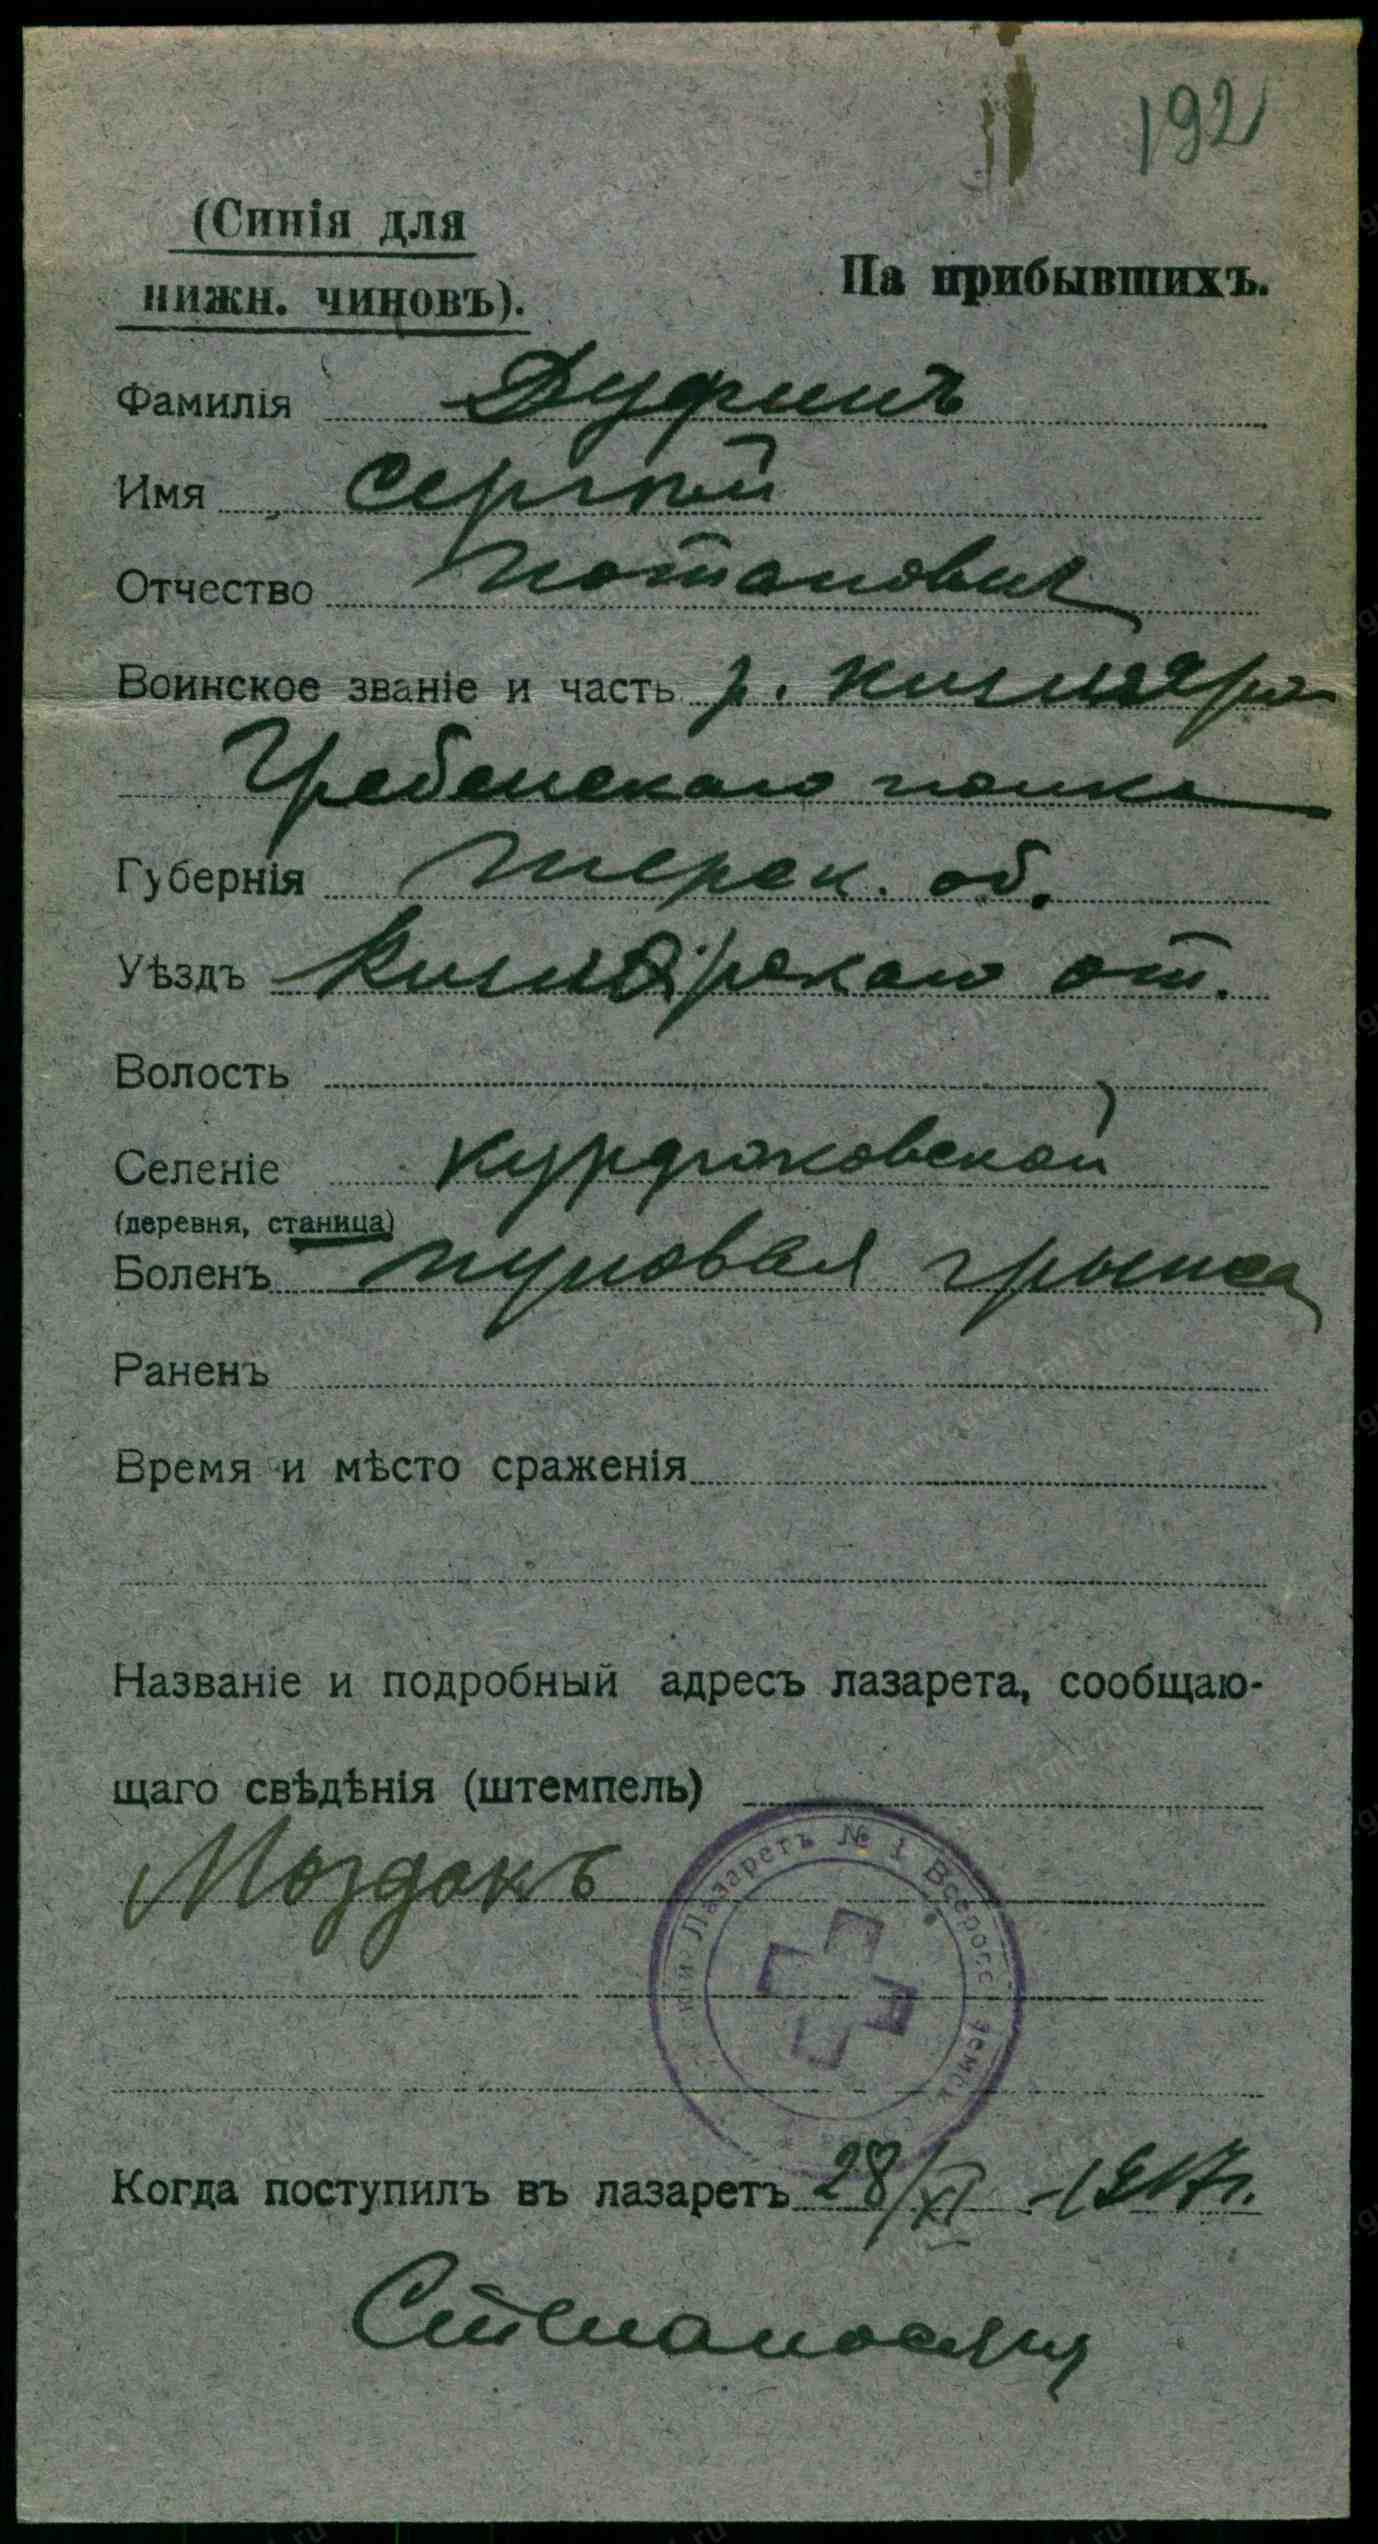 192
(Синія для
нижн. чиновъ).
На прибывшихъ.
Фамилія Дуфинъ
Имя Сергѣй
Отчество Потапович
Воинское званіе и часть р. Кизляро
Гребенскаго полка
Губернія Терск. об.
Уѣздъ Кизлярскаго от.
Волость
Селеніе Курдюковской
(деревня, станица)
Боленъ пуповая грыжа
Раненъ
Время и мѣсто сраженія
Названіе и подробный адресъ лазарета, сообщаю-
щаго свѣдѣнія (штемпель)
Моздокъ
Лазаретъ № 1 Всеросс. Земск.
Когда поступилъ въ лазаретъ 28/XI - 1917 г.